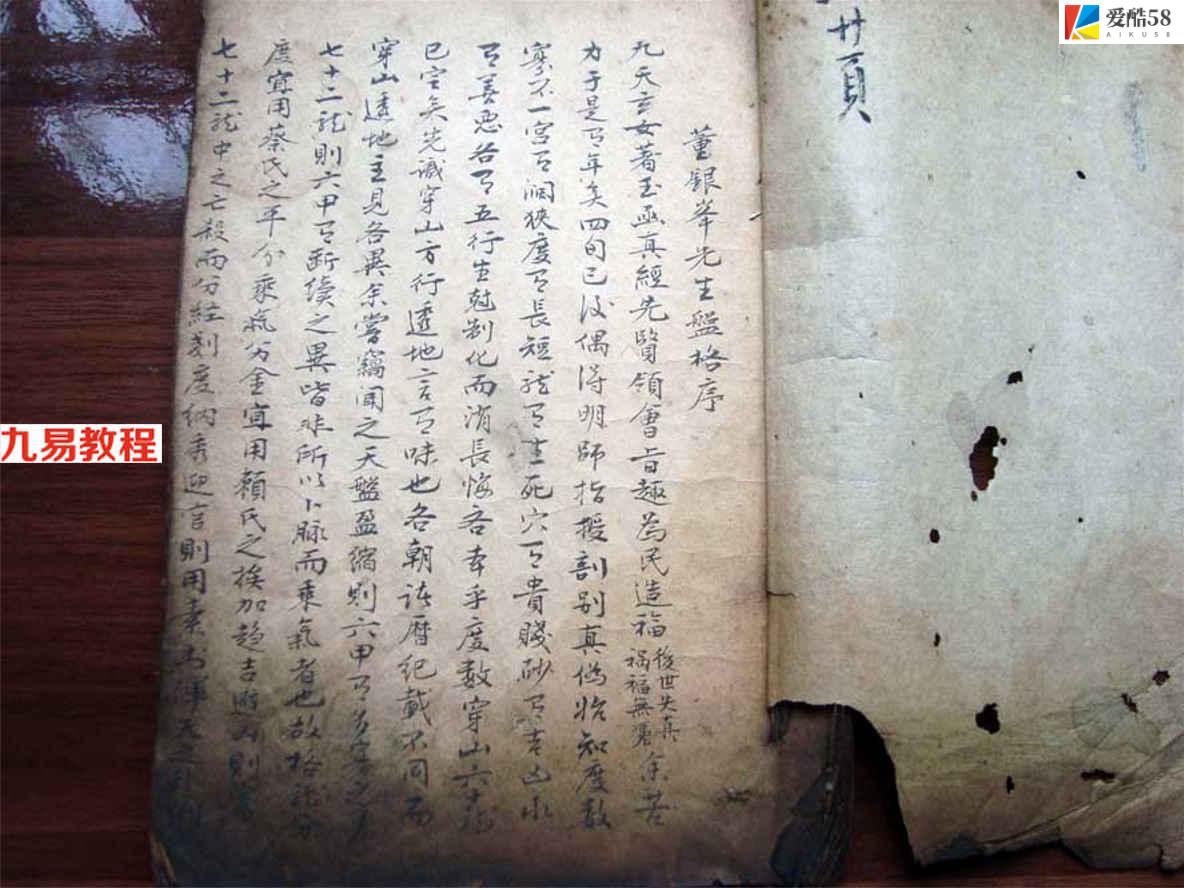 廿頁
董銀峯先生盤格序
九天玄女著玉函真經先賢領會旨趣為民造福
後世失真
禍福無憑
余苦
力于是有年矣四旬已後偶得明師指援剖别真偽始知度数
寡不一宫有濶狹度有長短龍有生死穴有貴賤砂有吉凶水
有善惡各有五行生尅制化而消長悔吝本乎度数穿山六十龍
已定矣先識穿山方行透地言有味也各朝諸暦紀載不同而
穿山透地主見各異余嘗竊聞之天盤盈縮則六甲有多寡之
七十二龍則六甲有断續之異皆非所以卜脉而乘氣者也故格龍分
度宜用蔡氏之平分乘氣分金宜用賴氏之挨加趋吉避凶則
七十二龍中之亡殺而分經刻度納秀迎官則用素書渾天之
九易教程
爱酷58
AIKU58